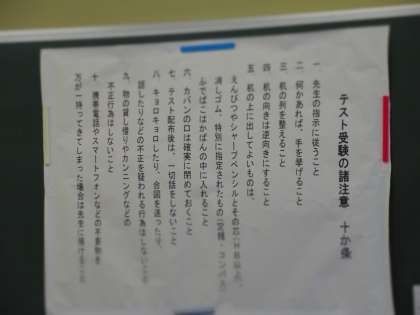 テスト受験の諸注意 十か条
一 先生の指示に従うこと
二 何かあれば、手を挙げること
三 机の列を整えること
四 机の向きは逆向きにすること
五 机の上に出してよいものは、
えんぴつやシャープペンシルとその芯(HB以上)、
消しゴム、特別に指定されたもの(定規・コンパス)
ふでばこはかばんの中に入れること
六 カバンの口は確実に閉めておくこと
七 テスト配布後は、一切話をしないこと
八 キョロキョロしたり、合図を送ったり、
話したりなどの不正を疑われる行為はしないこと
九 物の貸し借りやカンニングなどの
不正行為はしないこと
十 携帯電話やスマートフォンなどの不要物を
万が一持ってきてしまった場合は先生に